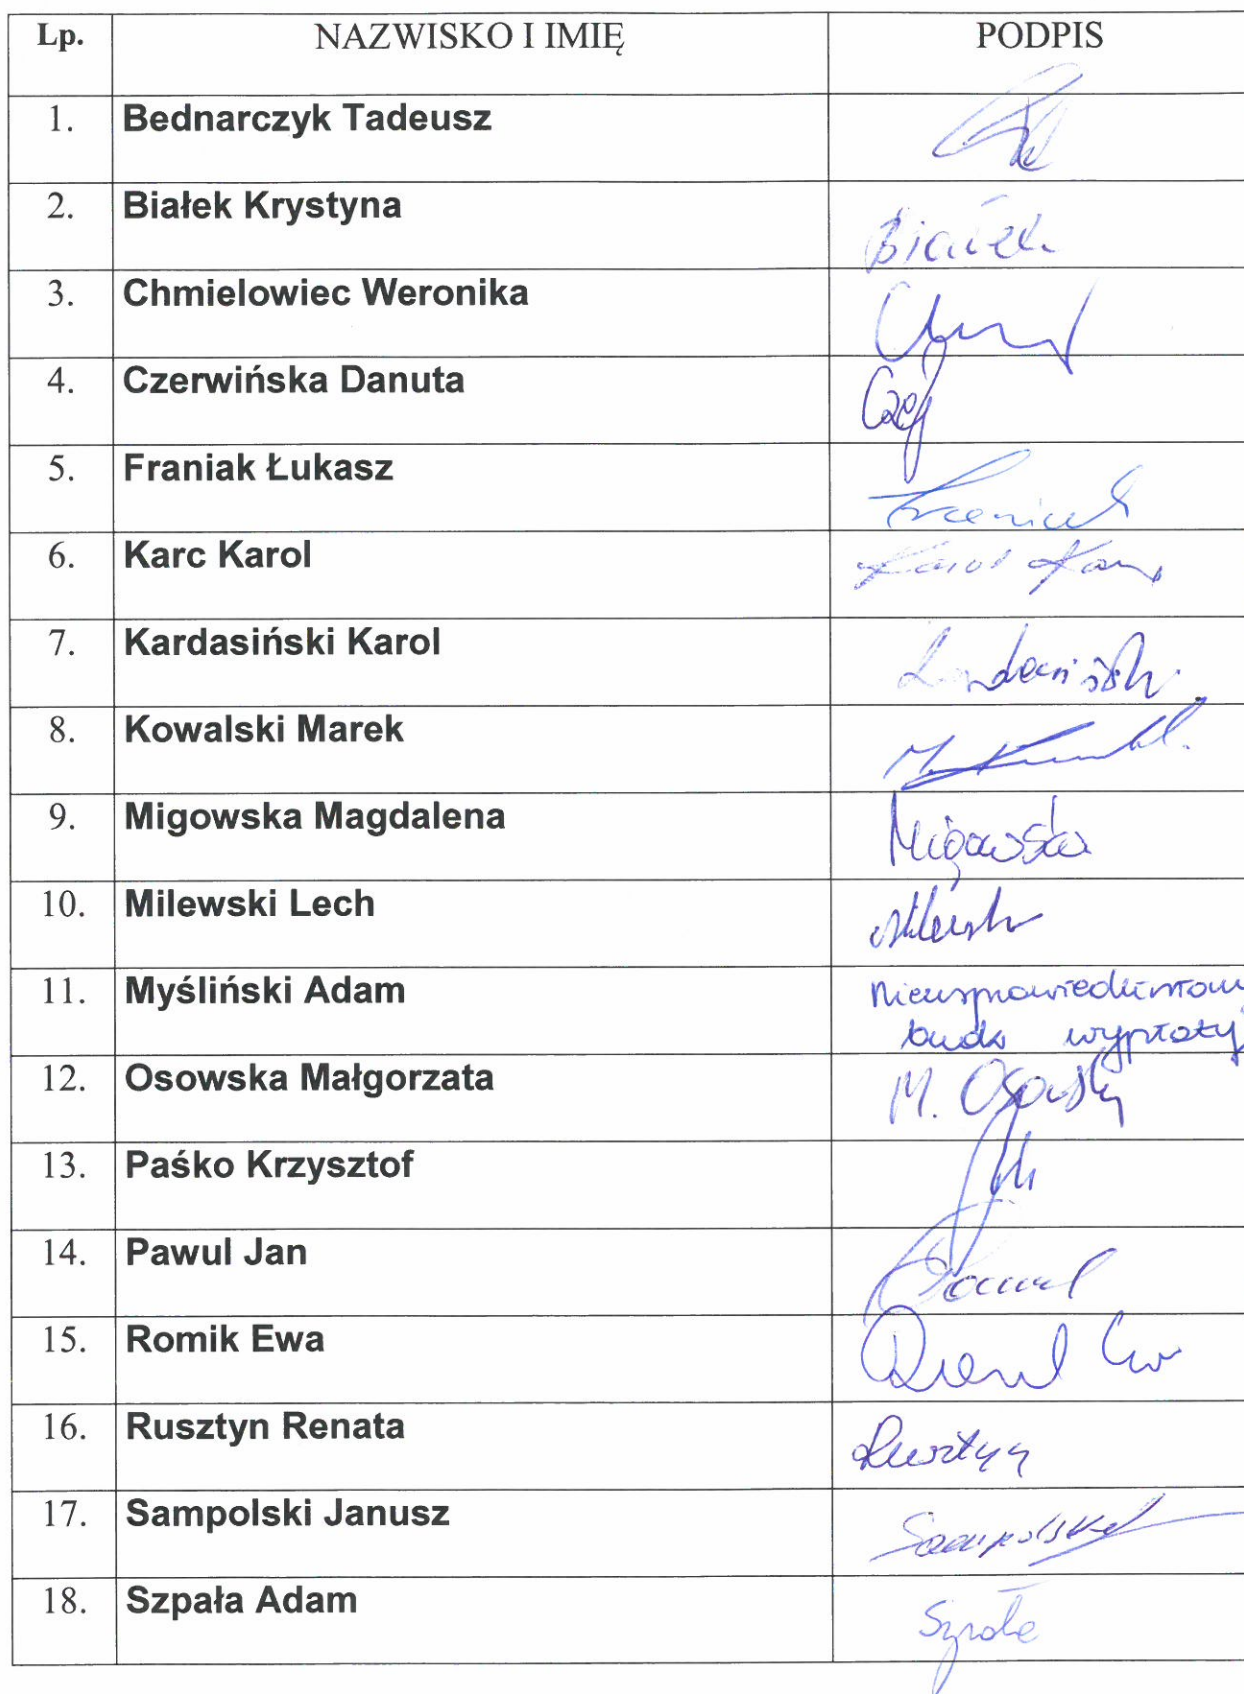 Lp. NAZWISKO I IMIĘ PODPIS
1. Bednarczyk Tadeusz
2. Białek Krystyna Białek
3. Chmielowiec Weronika
4. Czerwińska Danuta
5. Franiak Łukasz Franiak
6. Karc Karol Karol Karc
7. Kardasiński Karol
8. Kowalski Marek
9. Migowska Magdalena Migowska
10. Milewski Lech
11. Myśliński Adam
wypłaty
12. Osowska Małgorzata M. Osowska
13. Paśko Krzysztof
14. Pawul Jan Pawul
15. Romik Ewa
16. Rusztyn Renata Rusztyn
17. Sampolski Janusz Sampolski
18. Szpała Adam Szpała